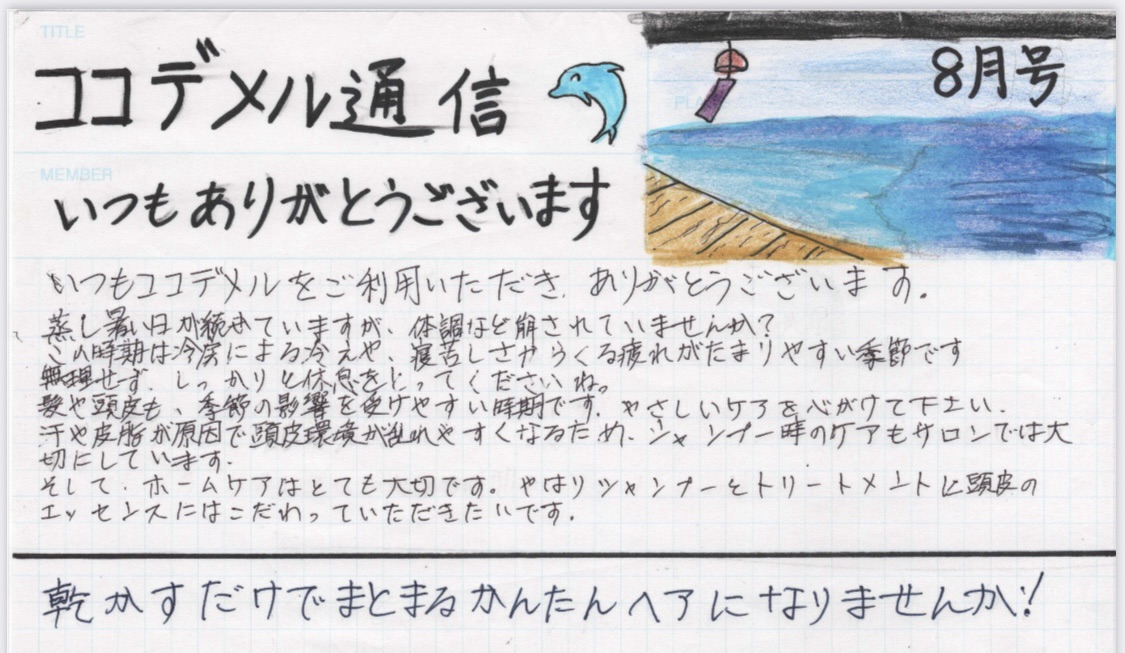 TITLE
ココデメル通信
8月号
PLA
MEMBER
いつもありがとうございます
いつもココデメルをご利用いただき、ありがとうございます。
蒸し暑い日が続きていますが、体調など崩されていませんか?
この時期は冷房による冷えや、寝苦しさからくる疲れがたまりやすい季節です
無理せず、しっかりと休息をとってくださいね。
髪や頭皮も、季節の影響を受けやすい時期です。やさしいケアを心がけて下さい。
汗や皮脂が原因で頭皮環境が乱れやすくなるため、シャンプー時のケアもサロンでは大
切にしています。
そして、ホームケアはとても大切です。やはりシャンプーとトリートメントと頭皮の
エッセンスにはこだわっていただきたいです。
乾かすだけでまとまるかんたんヘアになりませんか!